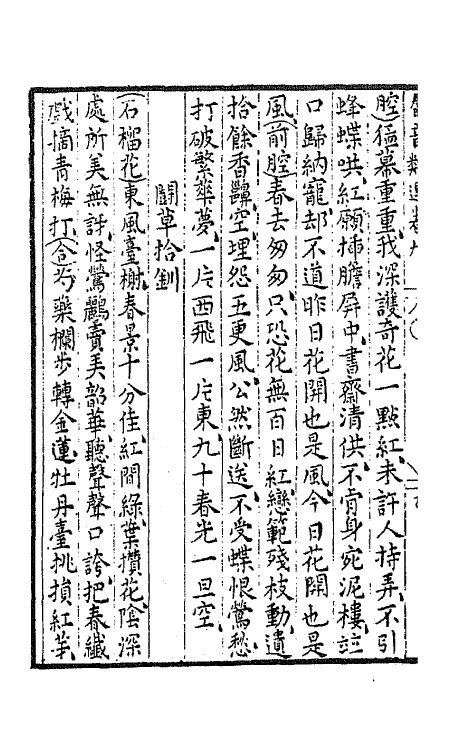 腔猛幕重重我深護奇花一點紅未許人持弄不引
蜂蝶哄紅願揷膽屏中書齋清供不肯身宛泥樓竝
口歸納寵却不道昨日花開也是風今日花開也是
風前腔春去匆匆只恐花無百日紅戀範殘枝動遺
拾餘香空埋怨五更風公然斷送不受蝶恨鶯愁
打破繁華夢一片西飛一片東九十春光一旦空
鬭草拾釧
石榴花東風臺榭春景十分佳紅間綠葉攢花陰深
處所美無訝怪鶯鸝賣美韶華聽聲聲口誇把春纖
戲摘青梅打合芍藥欄步轉金蓮牡丹臺挑損紅芽